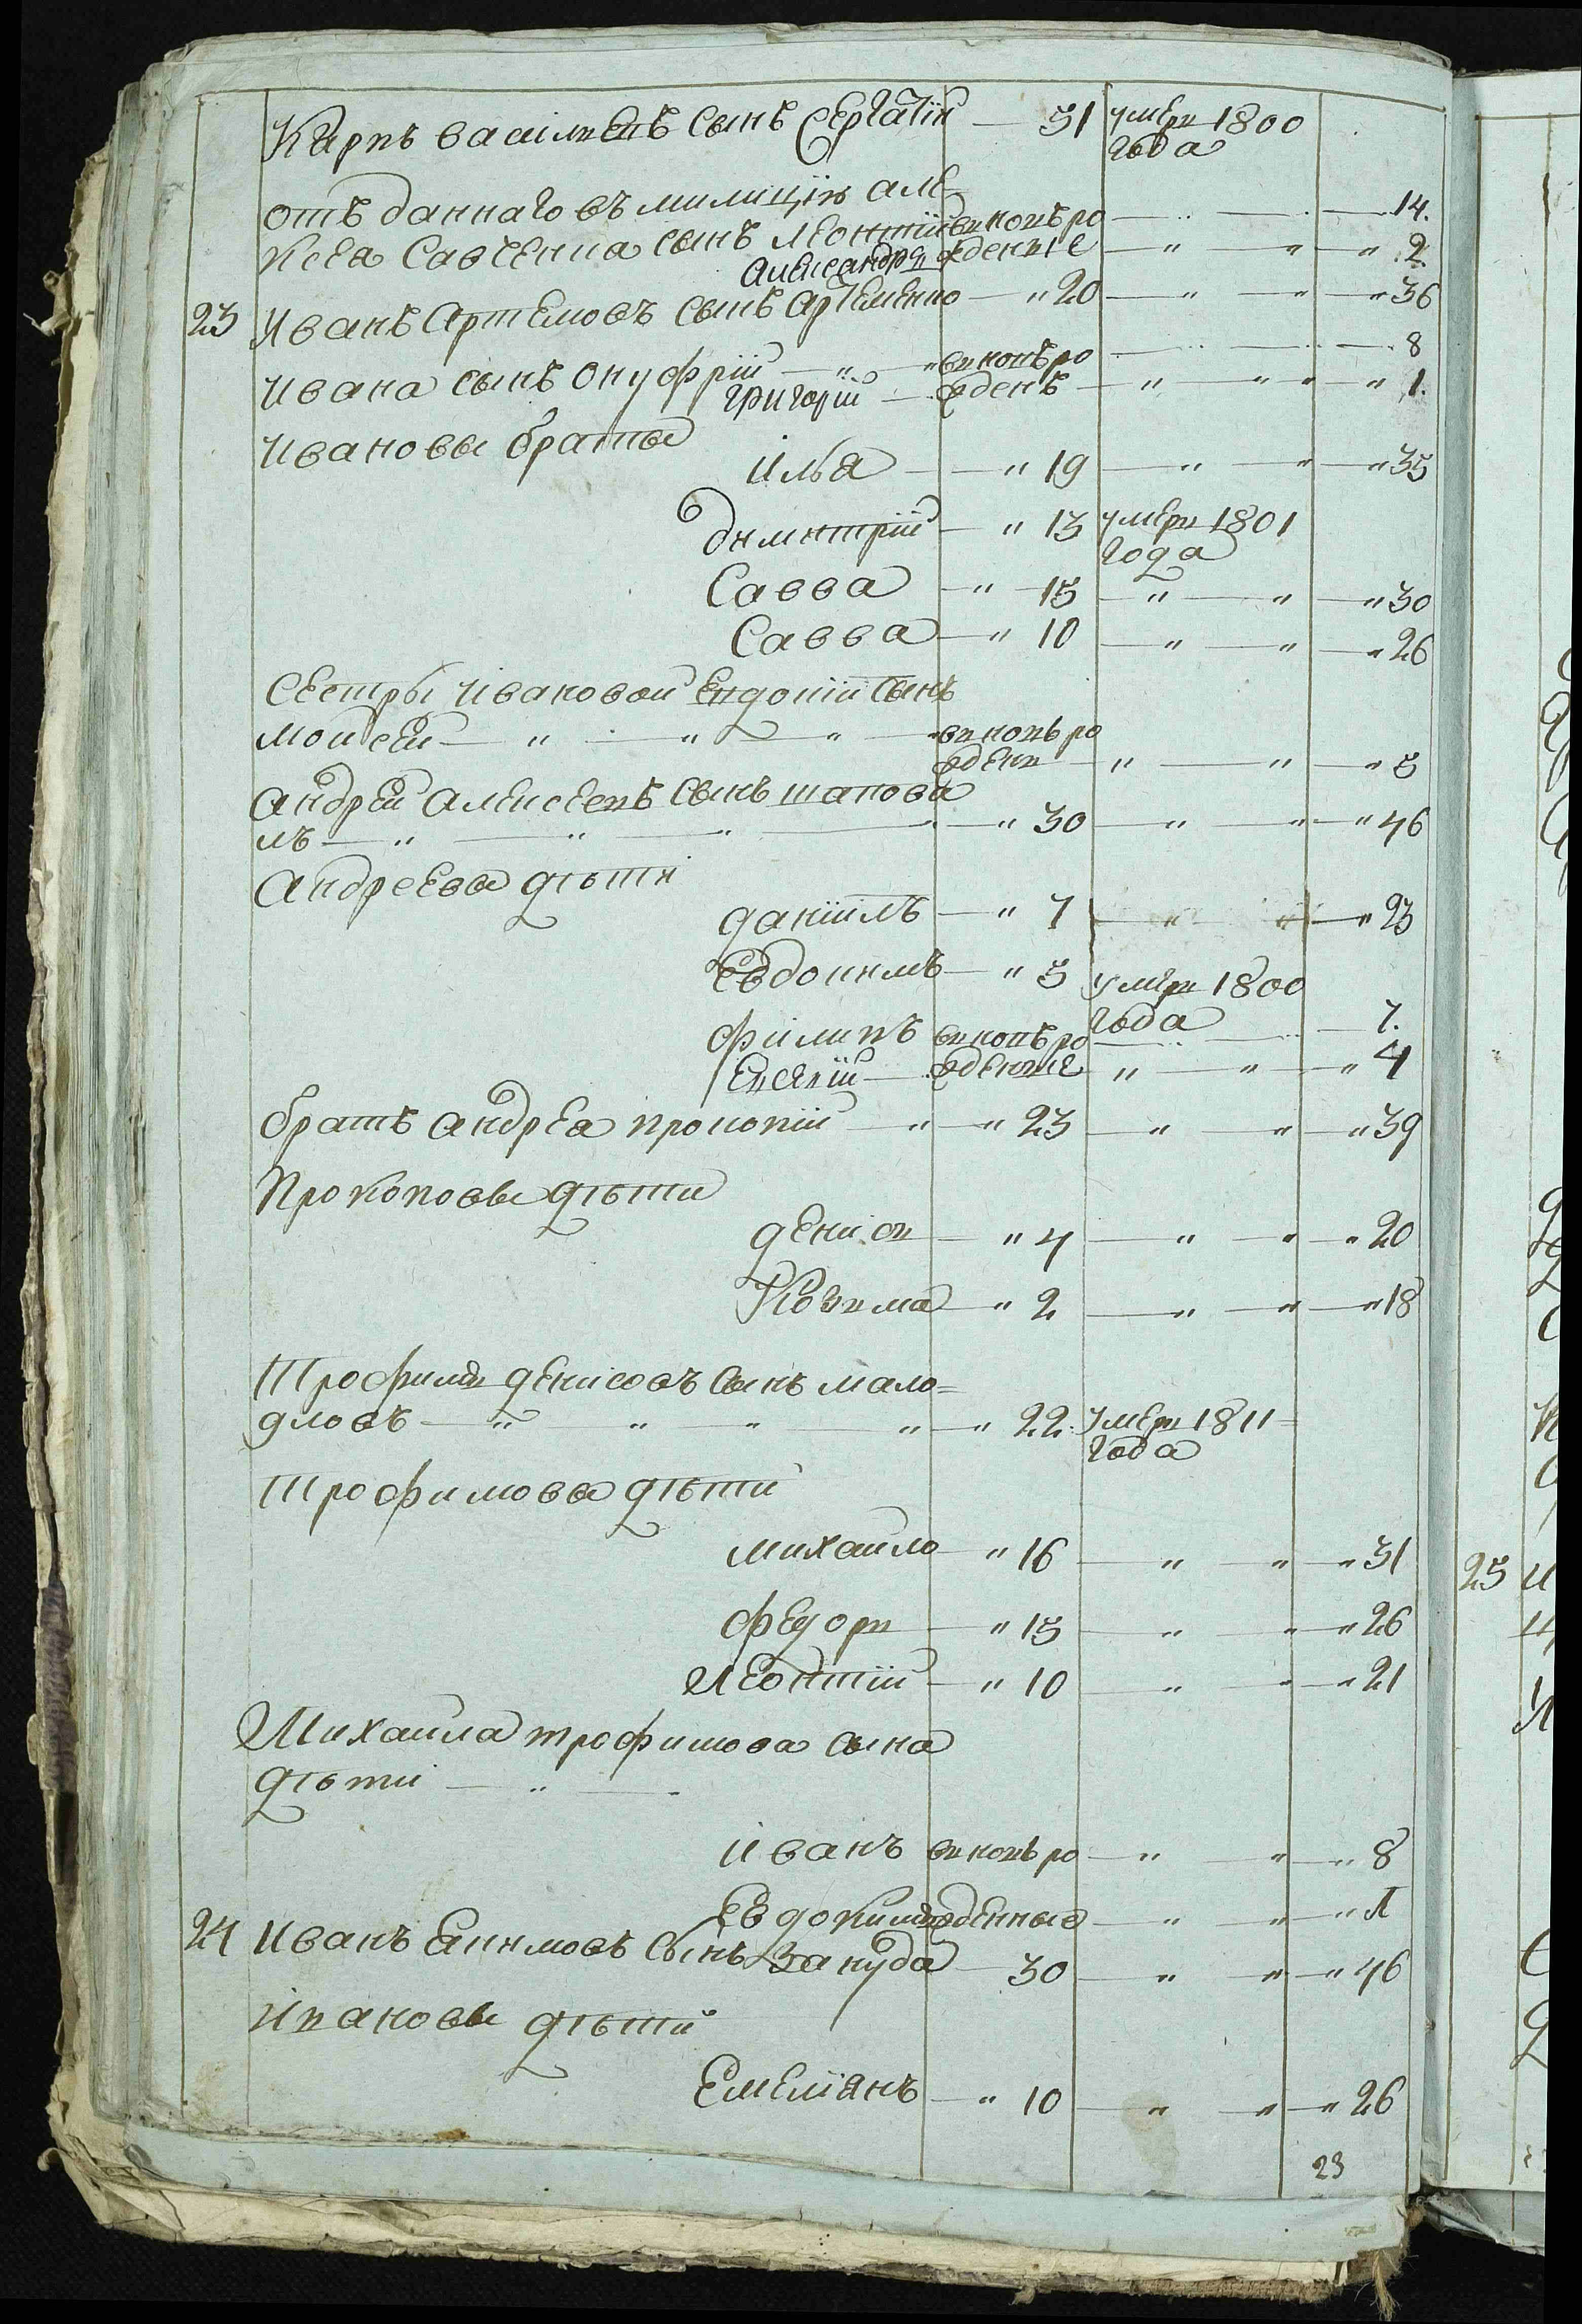 Карпъ васильевъ сынъ Сергатiй — 51 умеръ 1800
года
отъданнаго въ милицiю але-
ксея Савченка сынъ леонтiй вновь ро — " — 14.
александръ жденные — " — " — " 2.
23 Иванъ Артемовъ сынъ артеменко — " 20 — " — " — " 36
Ивана сынъ Онуфрiй — " — " вновь ро — " — 8
григорiй — жденъ — " — " — " 1.
Ивановы братья
илья — " 19 — " — " — " 35
димитрiй — " 13 умеръ 1801
года
Савва — " 15 — " — " — " 30
Савва — " 10 — " — " — " 26
Сестры Ивановой Евдокiи сынъ
моисей — " — " — " — вновь ро
жденъ — " — " — " 5
андрей алексеевъ сынъ шапова
лъ — " — " — " — " 30 — " — " — " 46
Андреевы дѣти
данiилъ — " 7 — " — " — " 23
Евдокимъ — " 5 умеръ 1800
года
филипъ вновь ро — " — 7.
Евсевiй — жденные " — " — " 4
братъ андрея прокопiй — " — " 23 — " — " — " 39
Прокоповы дѣти
денисъ — " 4 — " — " — " 20
Козьма — " 2 — " — " — " 18
Трофимъ денисовъ сынъ мало=
дловъ — " — " — " — " — " 22 умеръ 1811
года
Трофимовы дѣти
михайло — " 16 — " — " — " 31
федоръ — " 15 — " — " — " 26
Леонтiй — " 10 — " — " — " 21
Михайла трофимова сына
дѣти — " —
иванъ вновь ро — " — " — " 8
Евдокимъ жденные — " — " — " 1
24 Иванъ Екимовъ сынъ Закуда — 30 — " — " — " 46
Ивановы дѣти
Емелiянъ — " 10 — " — " — " 26
23
25